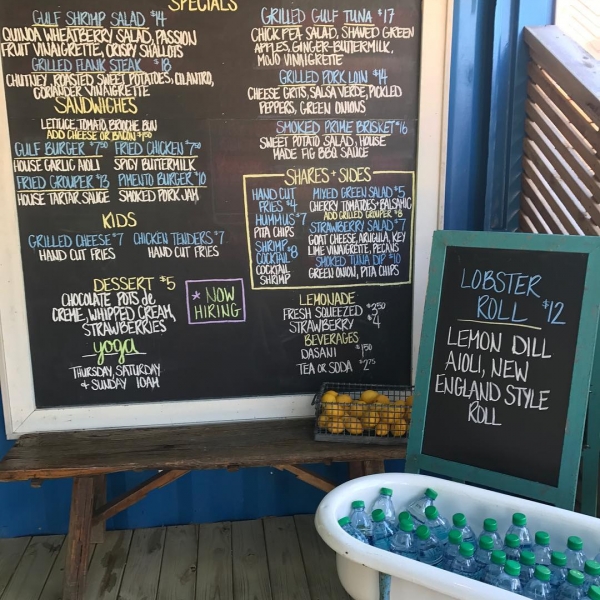 SPECIALS
GULF SHRIMP SALAD $14
QUINOA WHEATBERRY SALAD, PASSION
FRUIT VINAIGRETTE, CRISPY SHALLOTS
GRILLED FLANK STEAK $18
CHUTNEY, ROASTED SWEET POTATOES, CILANTRO,
CORIANDER VINAIGRETTE
SANDWICHES
LETTUCE, TOMATO, BRIOCHE BUN
ADD CHEESE OR BACON $1.50
GULF BURGER $7.50 FRIED CHICKEN $7.50
HOUSE GARLIC AIOLI SPICY BUTTERMILK
FRIED GROUPER $13 PIMENTO BURGER $10
HOUSE TARTAR SAUCE SMOKED PORK JAM
KIDS
GRILLED CHEESE $7 CHICKEN TENDERS $7
HAND CUT FRIES HAND CUT FRIES
DESSERT $5
CHOCOLATE POTS de
CREME, WHIPPED CREAM,
STRAWBERRIES
* NOW
HIRING
yoga
THURSDAY, SATURDAY
& SUNDAY 10AM
GRILLED GULF TUNA $17
CHICK PEA SALAD, SHAVED GREEN
APPLES, GINGER-BUTTERMILK,
MOJO VINAIGRETTE
GRILLED PORK LOIN $14
CHEESE GRITS, SALSA VERDE, PICKLED
PEPPERS, GREEN ONIONS
SMOKED PRIME BRISKET $16
SWEET POTATO SALAD, HOUSE
MADE FIG BBQ SAUCE
SHARES + SIDES
HAND CUT
FRIES $4
HUMMUS $7
PITA CHIPS
SHRIMP
COCKTAIL $8
COCKTAIL
SHRIMP
MIXED GREEN SALAD $5
CHERRY TOMATOES + BALSAMIC
ADD GRILLED GROUPER $8
STRAWBERRY SALAD $7
GOAT CHEESE, ARUGULA, KEY
LIME VINAIGRETTE, PECANS
SMOKED TUNA DIP $10
GREEN ONION, PITA CHIPS
LEMONADE
FRESH SQUEEZED $3.50
STRAWBERRY $4
BEVERAGES
DASANI $1.50
TEA OR SODA $2.75
LOBSTER
ROLL $12
LEMON DILL
AIOLI, NEW
ENGLAND STYLE
ROLL